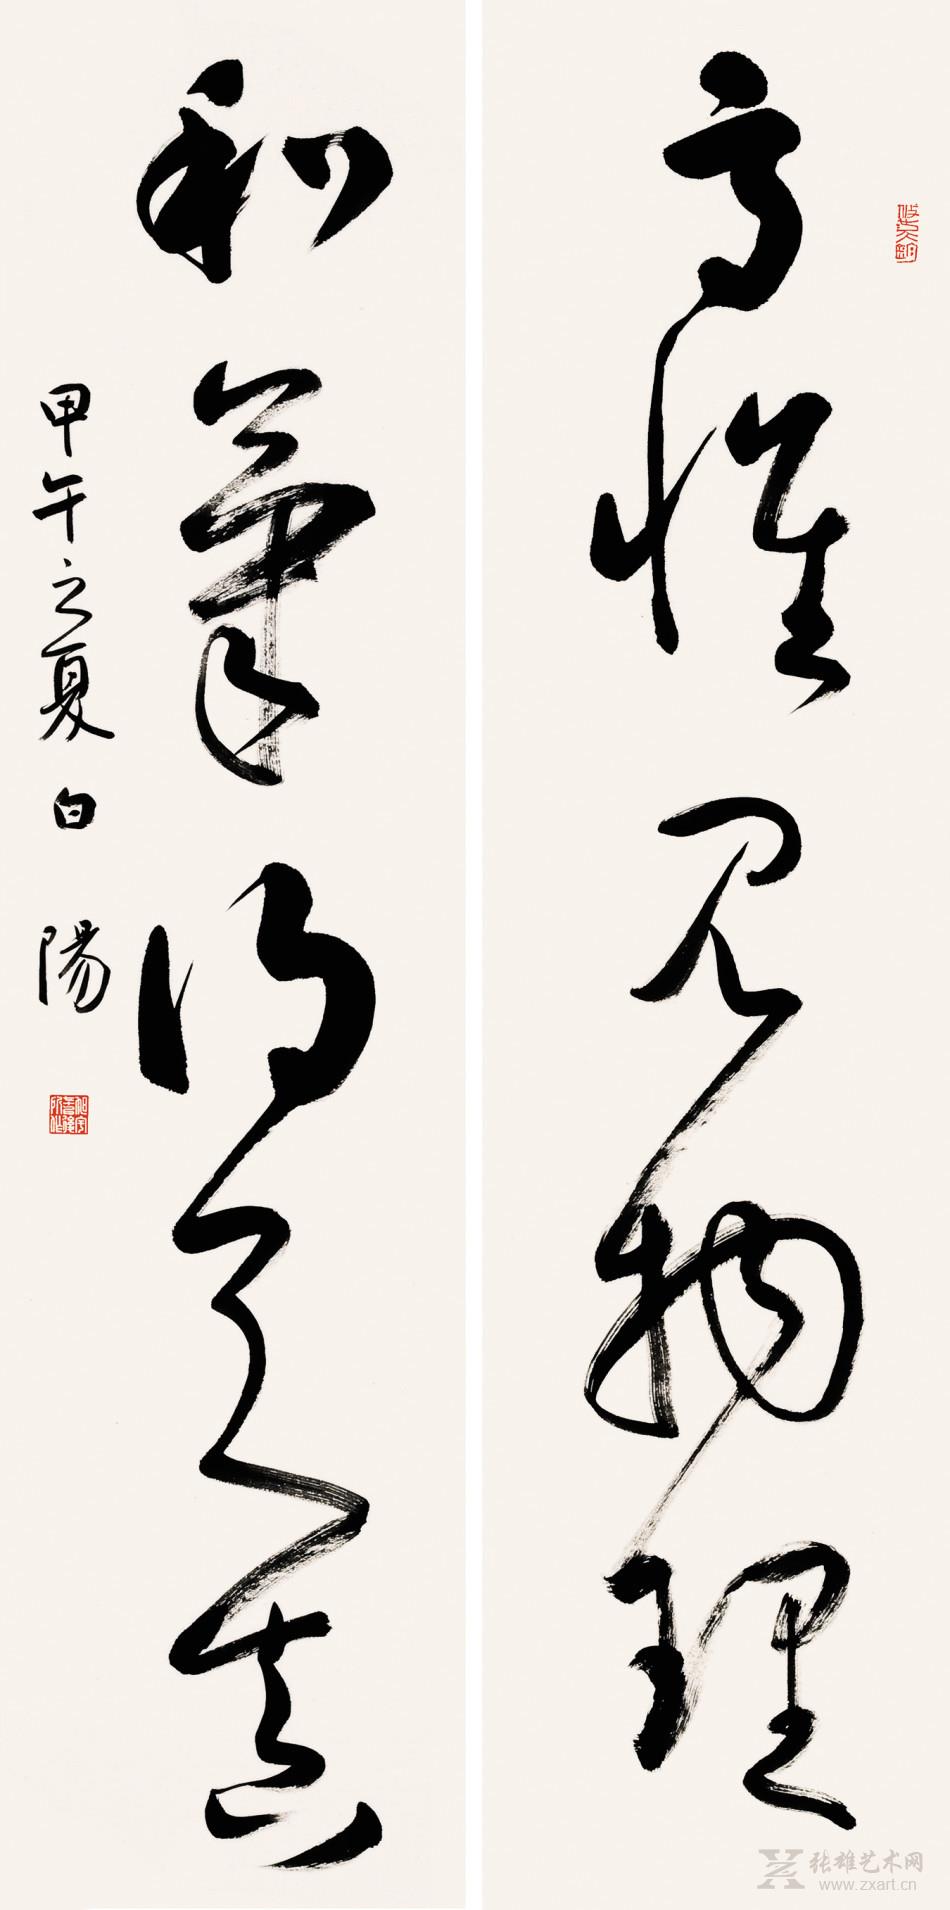 高懷見物理
和氣得天真
甲午之夏白陽
张雄艺术网
www.zxart.cn